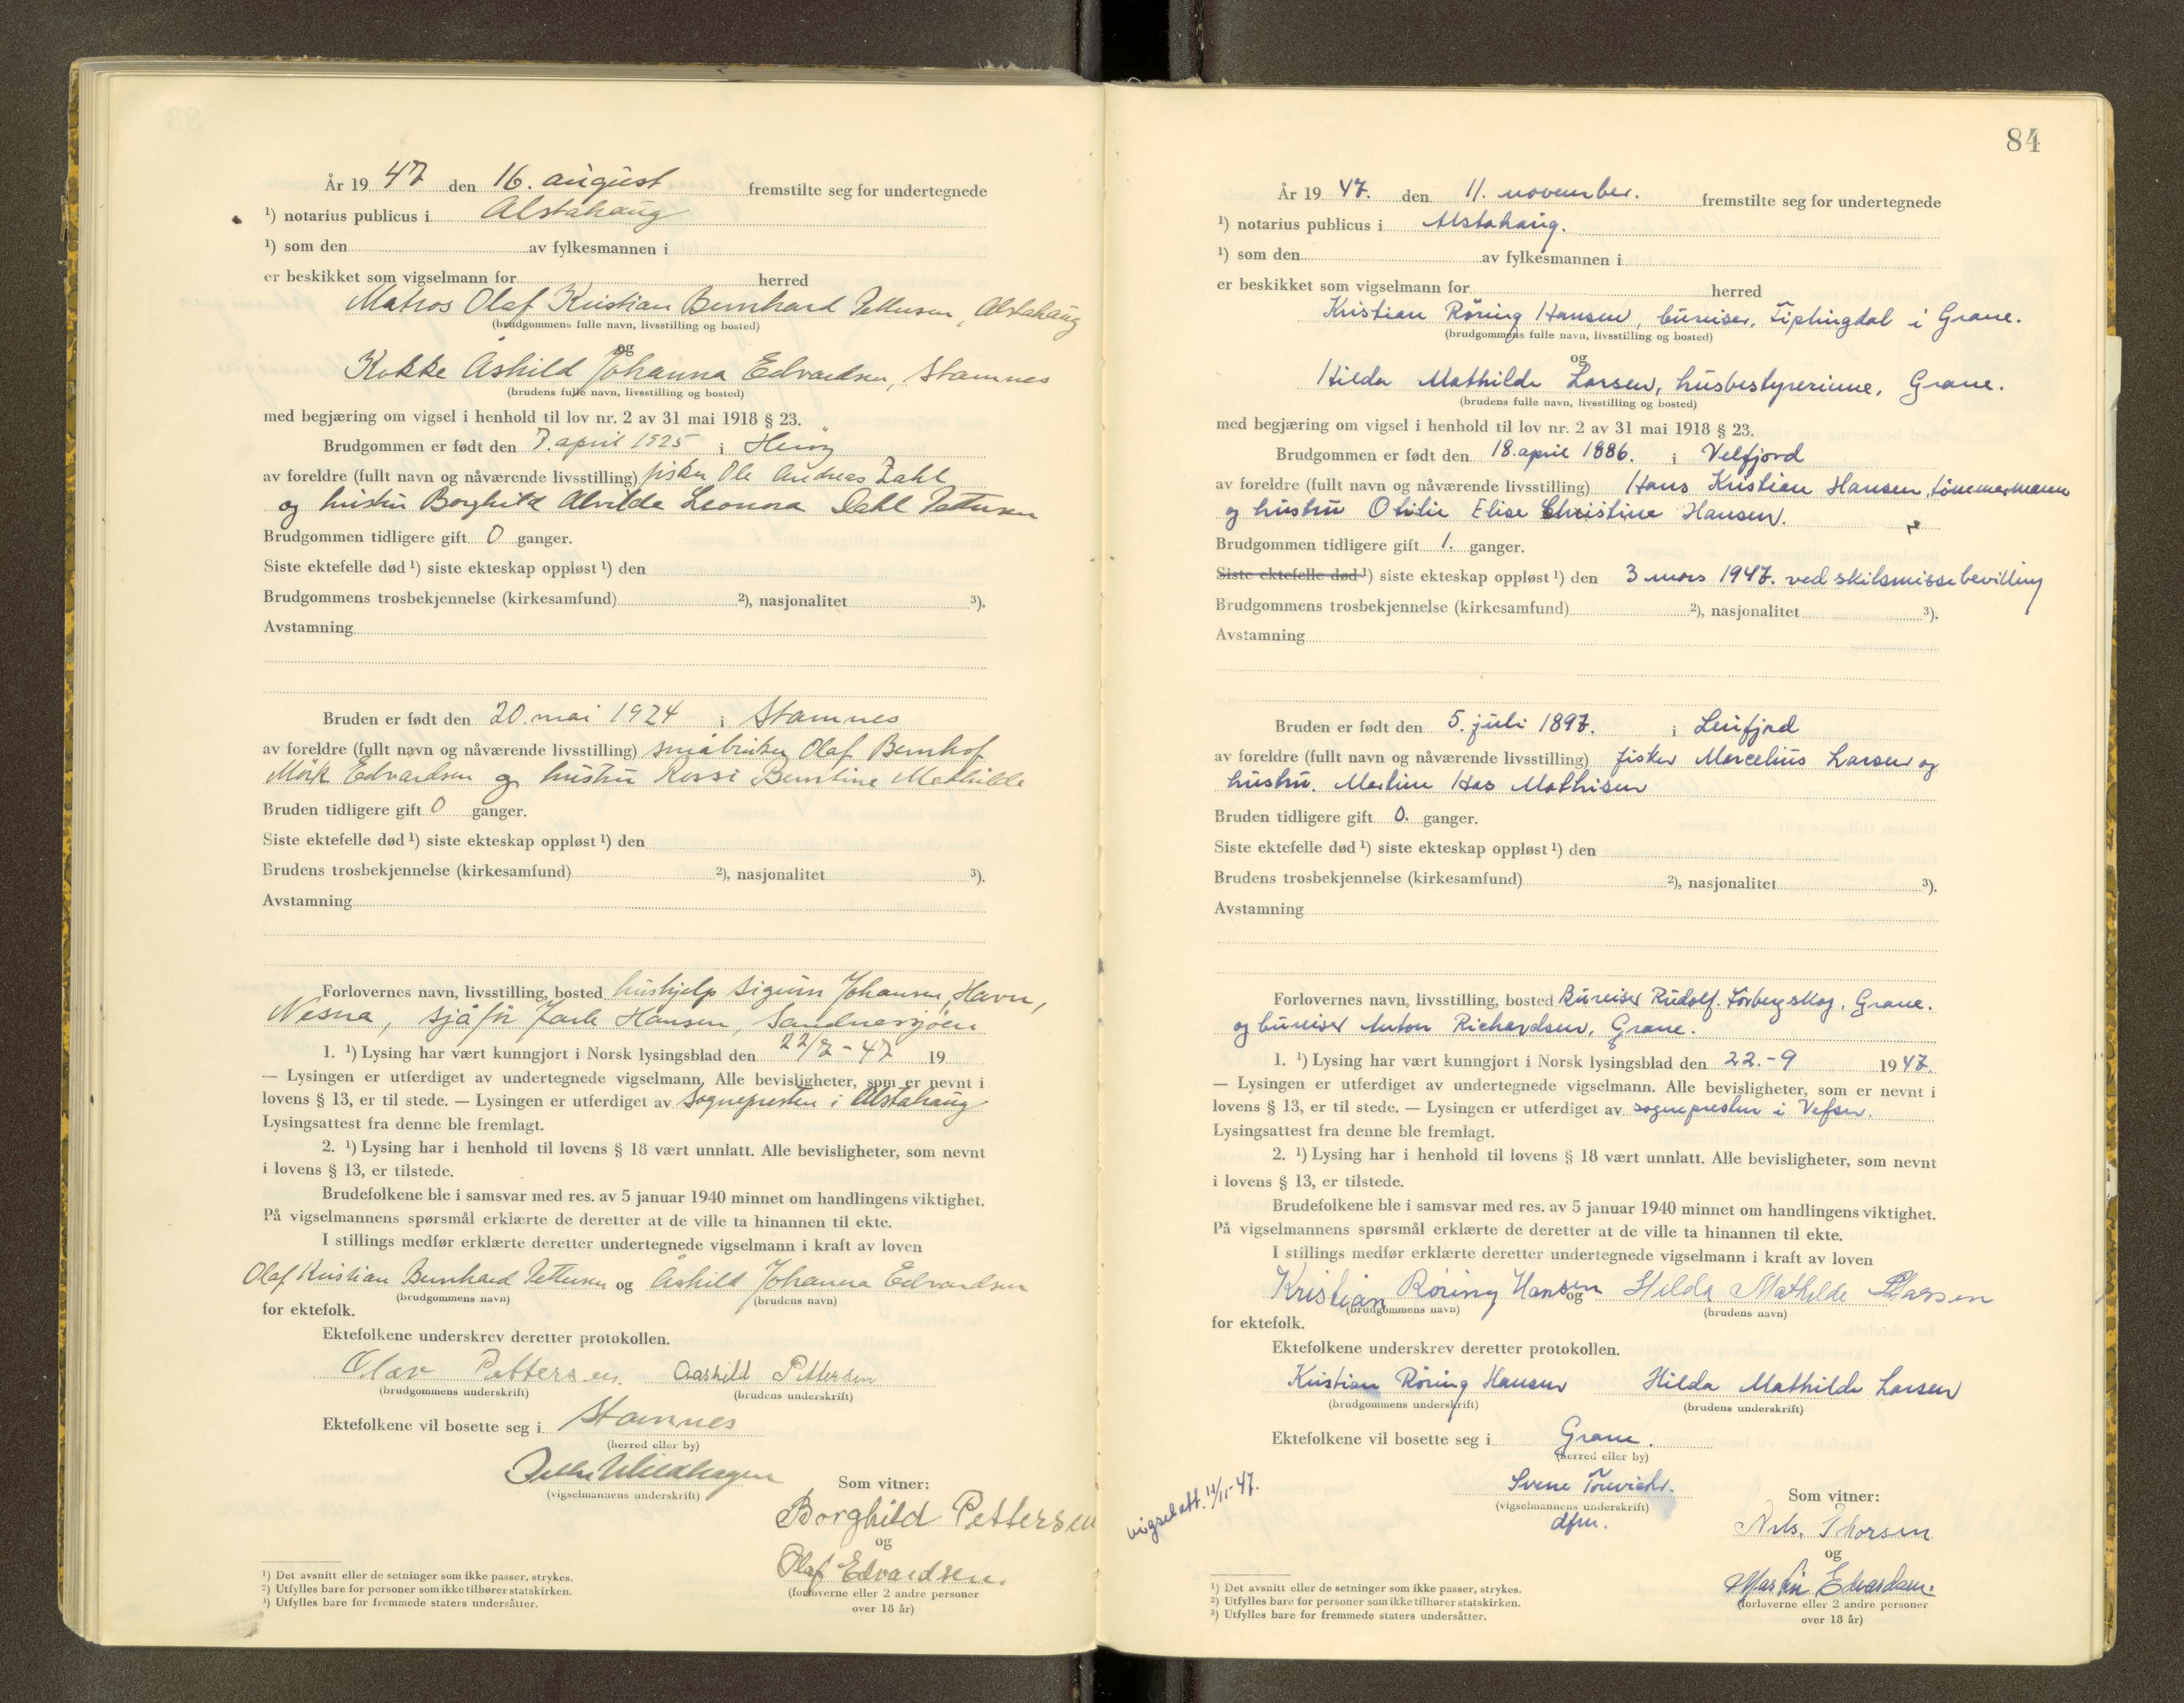 År 19 47 den 16. august fremstilte seg for undertegnede
¹) notarius publicus i Alstahaug
¹) som den av fylkesmannen i
er beskikket som vigselmann for herred
Matros Olaf Kristian Bernhard Pettersen, Alstahaug
(brudgommens fulle navn, livsstilling og bosted)
og
Kokke Åshild Johanna Edvardsen, Stamnes
(brudens fulle navn, livsstilling og bosted)
med begjæring om vigsel i henhold til lov nr. 2 av 31 mai 1918 § 23.
Brudgommen er født den 7. april 1925 i Herøy
av foreldre (fullt navn og nåværende livsstilling) fisker Ole Andreas Dahl
og hustru Borghild Alvilda Leonora Dahl Pettersen
Brudgommen tidligere gift 0 ganger.
Siste ektefelle død ¹) siste ekteskap oppløst ¹) den
Brudgommens trosbekjennelse (kirkesamfund) ²), nasjonalitet ³).
Avstamning
Bruden er født den 20. mai 1924 i Stamnes
av foreldre (fullt navn og nåværende livsstilling) småbruker Olaf Bernhof
Mörk Edvardsen og hustru Rossi Berntine Mathilde
Bruden tidligere gift 0 ganger.
Siste ektefelle død ¹) siste ekteskap oppløst ¹) den
Brudens trosbekjennelse (kirkesamfund) ²), nasjonalitet ³).
Avstamning
Forlovernes navn, livsstilling, bosted hushjelp Sigrun Johansen, Havn,
Nesna, sjåfør Jarle Hansen, Sandnessjøen
1. ¹) Lysing har vært kunngjort i Norsk lysingsblad den 22/7 - 47 19
— Lysingen er utferdiget av undertegnede vigselmann. Alle bevisligheter, som er nevnt i
lovens § 13, er til stede. — Lysingen er utferdiget av sognepresten i Alstahaug
Lysingsattest fra denne ble fremlagt.
2. ¹) Lysing har i henhold til lovens § 18 vært unnlatt. Alle bevisligheter, som nevnt
i lovens § 13, er tilstede.
Brudefolkene ble i samsvar med res. av 5 januar 1940 minnet om handlingens viktighet.
På vigselmannens spørsmål erklærte de deretter at de ville ta hinannen til ekte.
I stillings medfør erklærte deretter undertegnede vigselmann i kraft av loven
Olaf Kristian Bernhard Pettersen og Åshild Johanna Edvardsen
(brudgommens navn) (brudens navn)
for ektefolk.
Ektefolkene underskrev deretter protokollen.
Olav Pettersen. Aashild Pettersen
(brudgommens underskrift) (brudens underskrift)
Ektefolkene vil bosette seg i Stamnes
(herred eller by)
(vigselmannens underskrift)
Som vitner:
Borghild Pettersen
og
Olaf Edvardsen.
(forloverne eller 2 andre personer
over 18 år)
¹) Det avsnitt eller de setninger som ikke passer, strykes.
²) Utfylles bare for personer som ikke tilhører statskirken.
³) Utfylles bare for fremmede staters undersåtter.
84
År 19 47. den 11. november. fremstilte seg for undertegnede
¹) notarius publicus i Alstahaug.
¹) som den av fylkesmannen i
er beskikket som vigselmann for herred
Kristian Røring Hansen, bureiser, Fiplingdal i Grane.
(brudgommens fulle navn, livsstilling og bosted)
og
Hilda Mathilde Larsen, husbestyrerinne, Grane.
(brudens fulle navn, livsstilling og bosted)
med begjæring om vigsel i henhold til lov nr. 2 av 31 mai 1918 § 23.
Brudgommen er født den 18. april 1886. i Velfjord
av foreldre (fullt navn og nåværende livsstilling) Hans Kristian Hansen, tømmermann
og hustru Otilie Elise Christine Hansen.
Brudgommen tidligere gift 1. ganger.
Siste ektefelle død ¹) siste ekteskap oppløst ¹) den 3 mars 1947. ved skilsmissebevilling
Brudgommens trosbekjennelse (kirkesamfund) ²), nasjonalitet ³).
Avstamning
Bruden er født den 5. juli 1897. i Leirfjord
av foreldre (fullt navn og nåværende livsstilling) fisker Marcelius Larsen og
hustru. Martine Has Mathisen
Bruden tidligere gift 0. ganger.
Siste ektefelle død ¹) siste ekteskap oppløst ¹) den
Brudens trosbekjennelse (kirkesamfund) ²), nasjonalitet ³).
Avstamning
Forlovernes navn, livsstilling, bosted Bureiser Rudolf. Forbergskog, Grane.
og bureiser Anton Richardsen, Grane.
1. ¹) Lysing har vært kunngjort i Norsk lysingsblad den 22.-9 1947.
— Lysingen er utferdiget av undertegnede vigselmann. Alle bevisligheter, som er nevnt i
lovens § 13, er til stede. — Lysingen er utferdiget av sognepresten i Vefsn.
Lysingsattest fra denne ble fremlagt.
2. ¹) Lysing har i henhold til lovens § 18 vært unnlatt. Alle bevisligheter, som nevnt
i lovens § 13, er tilstede.
Brudefolkene ble i samsvar med res. av 5 januar 1940 minnet om handlingens viktighet.
På vigselmannens spørsmål erklærte de deretter at de ville ta hinannen til ekte.
I stillings medfør erklærte deretter undertegnede vigselmann i kraft av loven
Kristian Røring Hansen og Hilda Mathilde Larsen
(brudgommens navn) (brudens navn)
for ektefolk.
Ektefolkene underskrev deretter protokollen.
Kristian Røring Hansen Hilda Mathilde Larsen
(brudgommens underskrift) (brudens underskrift)
Ektefolkene vil bosette seg i Grane.
(herred eller by)
vigselatt. 12/11-47.
(vigselmannens underskrift)
dfm.
Som vitner:
Nils. Thorsen
og
Martin Edvardsen.
(forloverne eller 2 andre personer
over 18 år)
¹) Det avsnitt eller de setninger som ikke passer, strykes.
²) Utfylles bare for personer som ikke tilhører statskirken.
³) Utfylles bare for fremmede staters undersåtter.